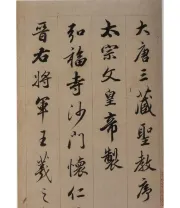 大唐三藏聖教序
太宗文皇帝製
弘福寺沙門懷仁集
晉右將軍王羲之